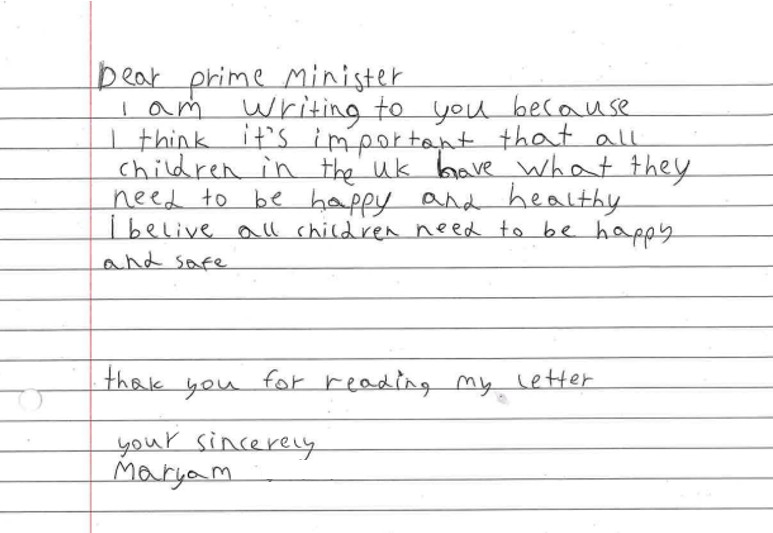 Dear prime Minister
I am writing to you because
I think it's important that all
children in the uk have what they
need to be happy and healthy
I belive all children need to be happy
and safe
thak you for reading my letter
your sincerely
Maryam